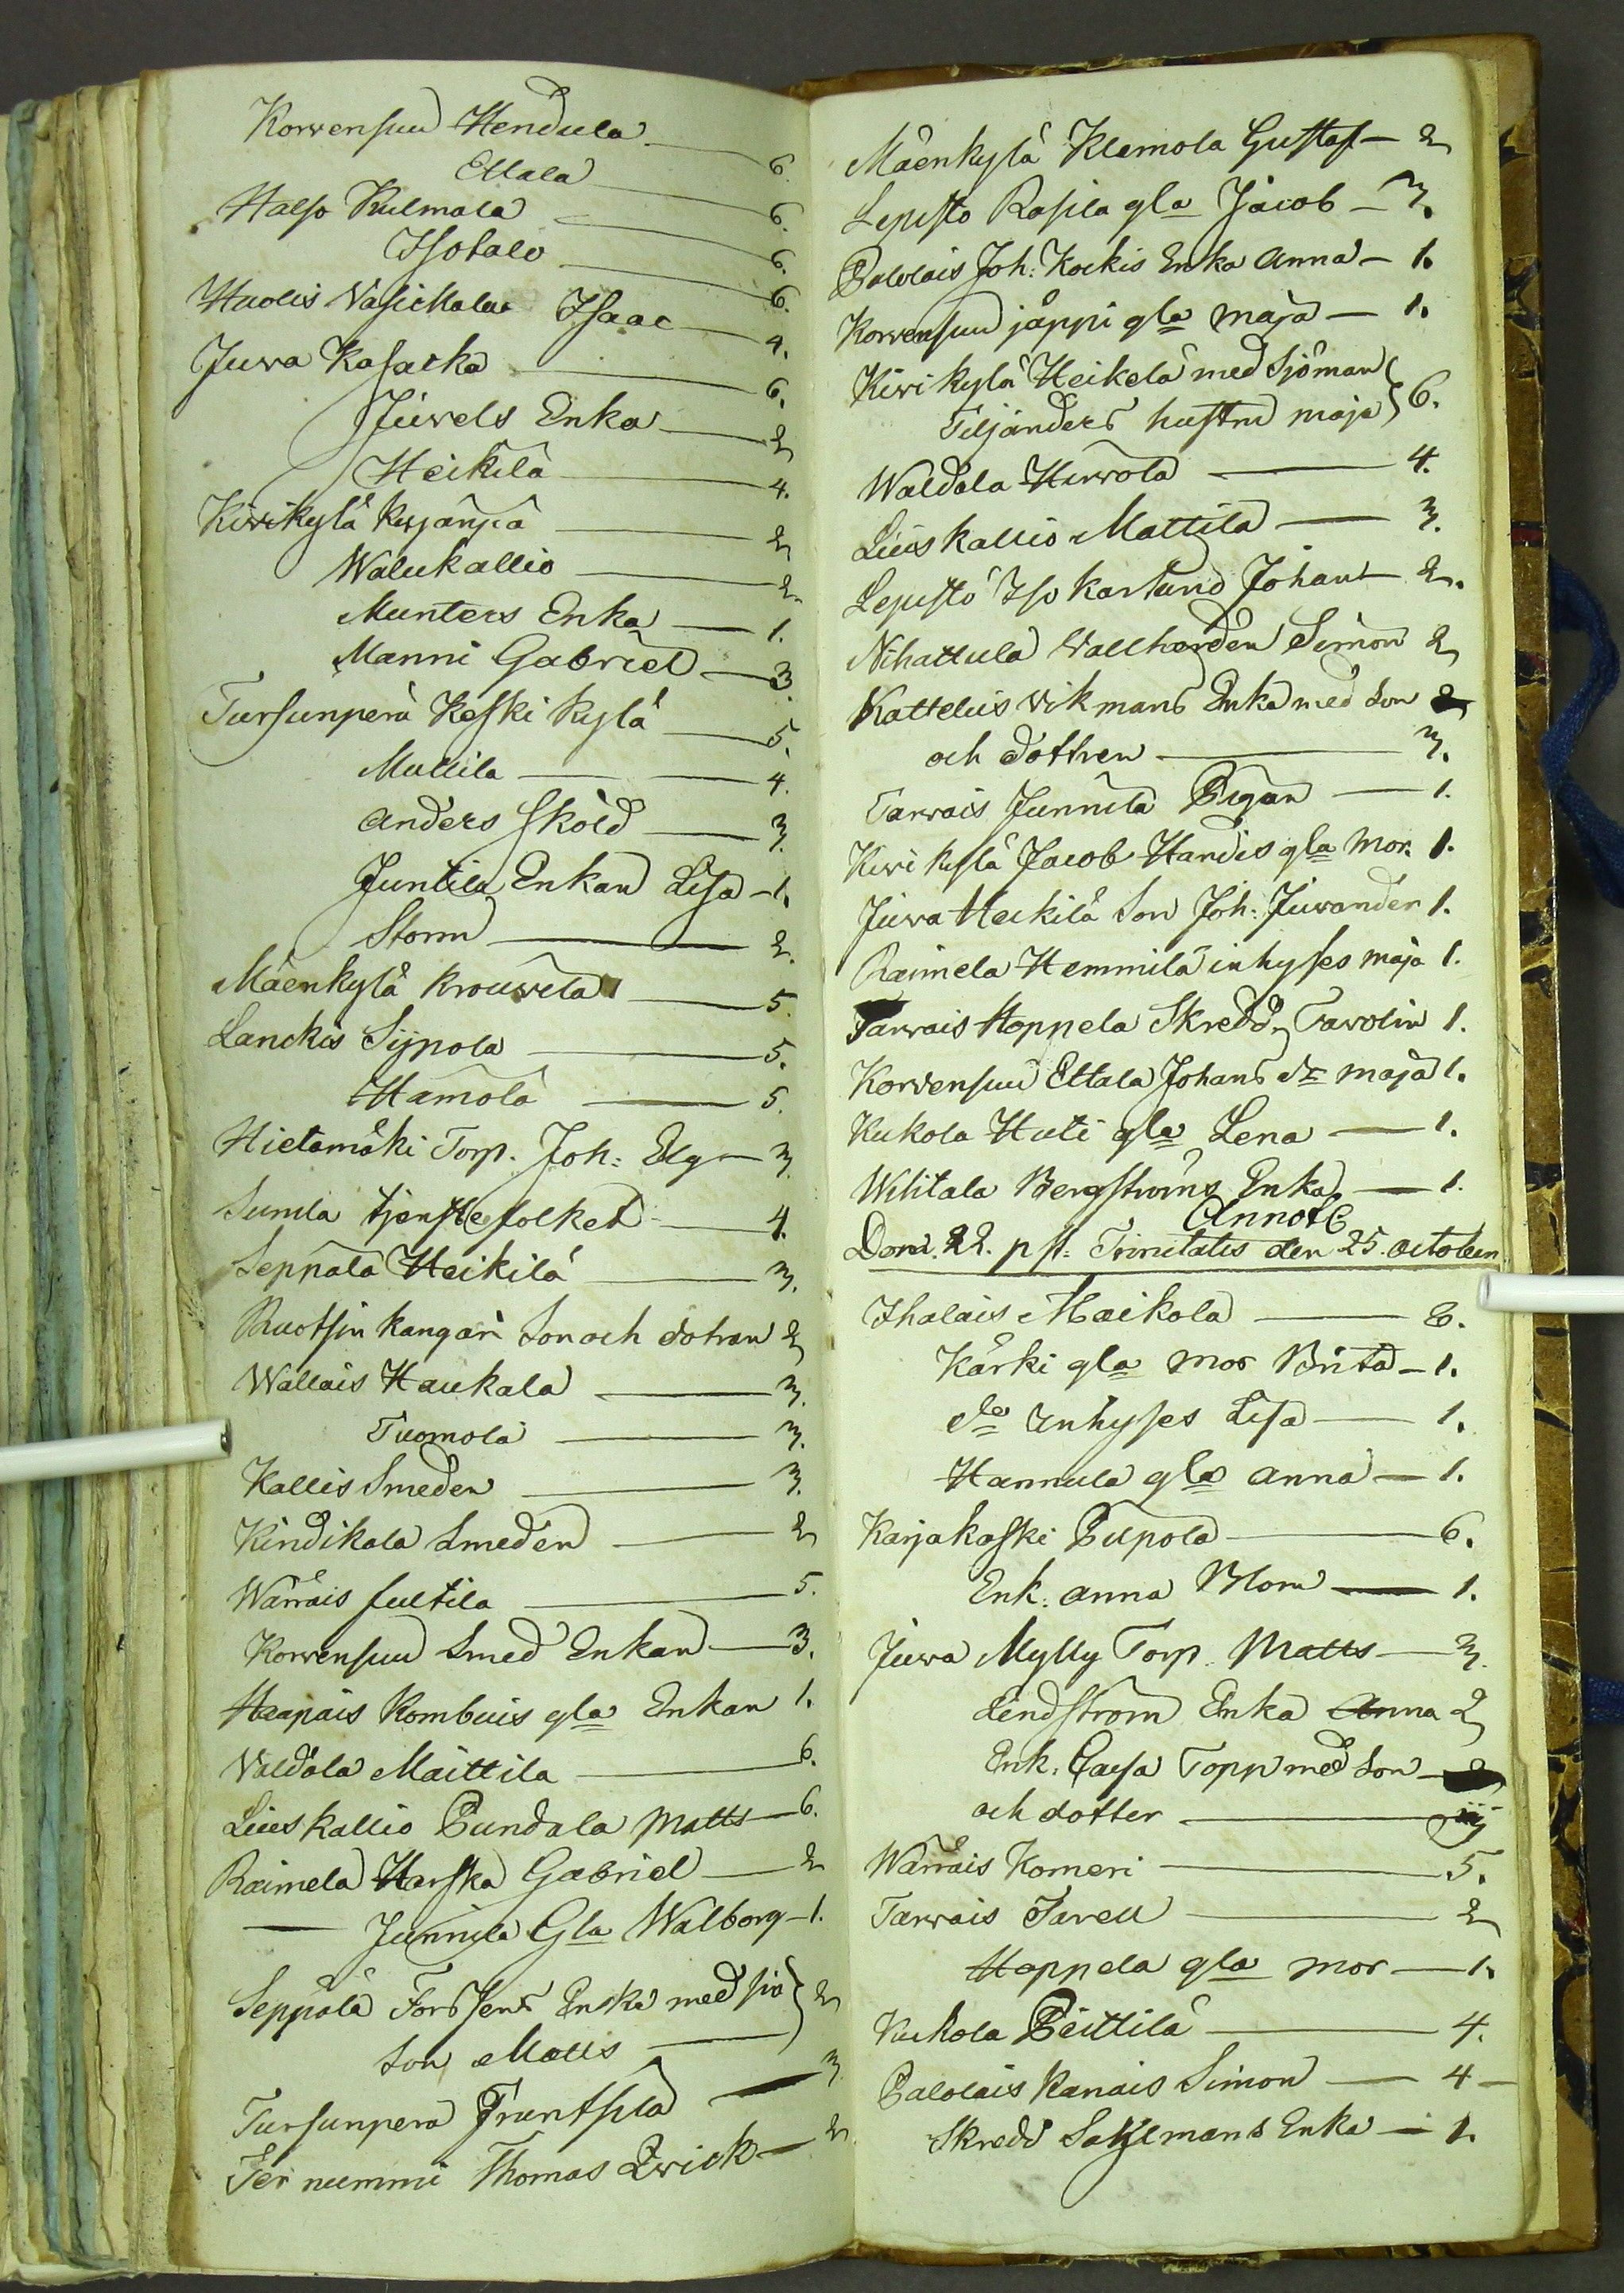 Korvensuu Hendula — 6.
Ellala — 6.
Halso Kulmala — 6.
Isotalo — 6.
Huolis Vasickala Isaac — 4.
Juva Kasacka — 6.
Juvels Enka — 2
Heikilä — 4.
Kivikylä Kerjänpä — 2
Walukallio — 2.
Munters Enka — 1.
Manni Gabriel — 3.
Tursunperä Keski Kylä — 5.
Mullila — 4.
Anders Sköld — 3.
Juntila Enkan Lisa — 1.
Storm — 2.
Mäenkylä Krouvila — 5.
Lanckis Sijpola — 5.
Hamola — 5.
Hietamäki Torp. Joh: Elg — 3.
Sunila tjenstefolket — 4.
Seppälä Heikilä — 3.
Ruotsin kangari Son och dotran 2
Wallais Haukala — 3.
Tuomola — 3.
Kallis Smeden — 3.
Kindikala Smeden — 2
Wärrais sultila — 5.
Korvensuu Smed Enkan — 3.
Haapais Kombuis gla Enkan 1.
Valdola Maittila — 6.
Lieskallio Pundala Matts — 6.
Raimela Harska Gabriel — 2
— Junnila Gla Walborg — 1.
Seppälä Forssens Enka med sin
Son Matts — } 2
Tursunperä Fruntsila — 3.
Jer nummi Thomas Qvick — 2
Mäenkylä Klemola Gustaf — 2
Lepistö Rasila gla Jacob — 3.
Palolais Joh: Kockis Enka Anna — 1.
Korvensuu jåppi gla maja — 1.
Kivikylä Heikelä med Sjöman
Tiljanders hustru maja } 6.
Waldola Hirvola — 4.
Lieskallio Mattila — 3.
Lepistö Iso Kartano Johan — 2.
Nihattula Vallherden Simon 2
Kattelus Vikmans Enka med Son 2
och dothren — 3.
Tarvais Junnila Pigan — 1.
Kivi kylä Jacob Handis gla Mor. 1.
Juva Heikilä Son Joh: Juvander 1.
Raimela Hemmilä inhyses maja 1.
Tarvais Hoppela Skredd. Tarolin 1.
Korvensuu Ettala Johans dr maja 1.
Kukola Huti gla Lena — 1.
Wilitala Bergströms Enka — 1.
Annot
Dom. 22. pst: Trinitatis den 25. october
Ihalais Maikola — 8.
Kärki gla mor Brita — 1.
do inhyses Lisa — 1.
Hannula gla anna — 1.
Karjakoski Pupola — 6.
Enk: anna Blom — 1.
Juva Mylly Torp. Matts — 3.
Lindström Enka Anna 2
Enk: Caisa Topp med Son —
och dotter — iij
Wärrais Komeri — 5.
Tarvais Tarell — 2
Hoppela gla mor — 1.
Kukola Peittilä — 4.
Palolais Kanais Simon — 4 —
Skredd Sahlmans Enka — 1.